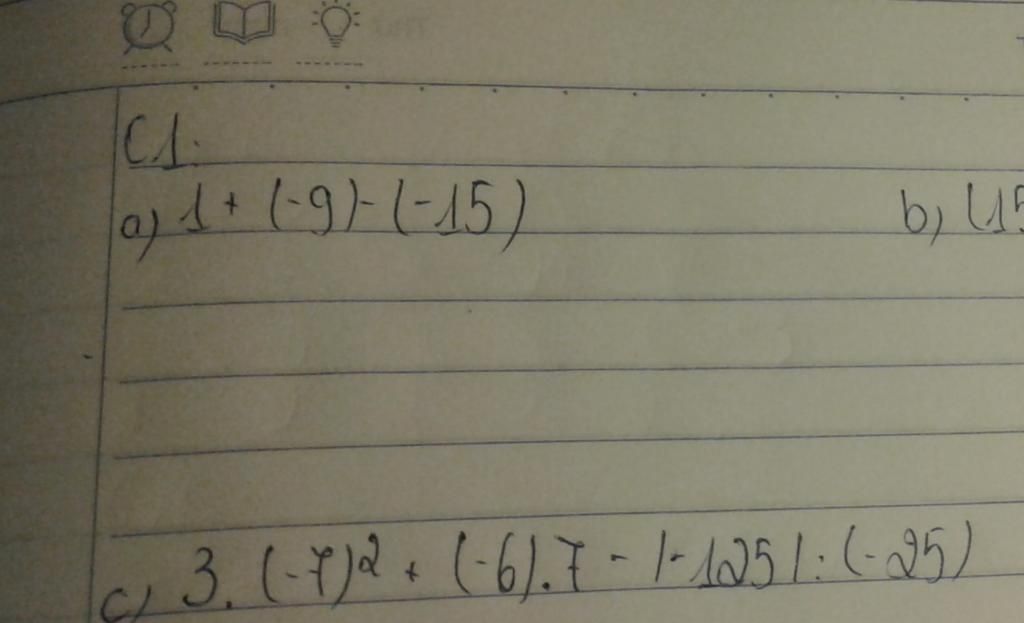 C1.
a) 1 + (-9) - (-15) b) (15
c) 3. (-7)² + (-6).7 - |-125| : (-25)